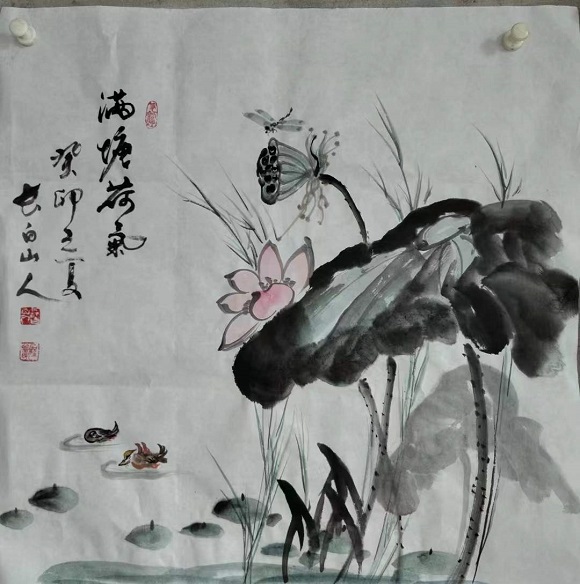 满塘荷氣
癸卯之夏
长白山人